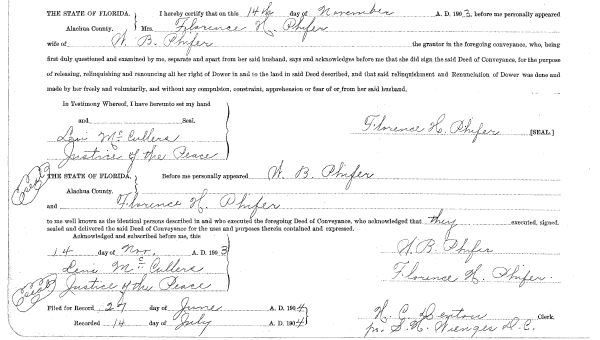 THE STATE OF FLORIDA. } I hereby certify that on this 14th day of November A. D. 1903, before me personally appeared
Alachua County. } Mrs. Florence H. Phifer
wife of W. B. Phifer the grantor in the foregoing conveyance, who, being
first duly questioned and examined by me, separate and apart from her said husband, says and acknowledges before me that she did sign the said Deed of Conveyance, for the purpose
of releasing, relinquishing and renouncing all her right of Dower in and to the land in said Deed described, and that said relinquishment and Renunciation of Dower was done and
made by her freely and voluntarily, and without any compulsion, constraint, apprehension or fear of or from her said husband.
In Testimony Whereof, I have hereunto set my hand
and Seal.
Levi McCullers
Justice of the Peace
Florence H. Phifer [SEAL]
(Seal)
THE STATE OF FLORIDA. } Before me personally appeared W. B. Phifer
Alachua County.
and Florence H. Phifer
to me well known as the identical persons described in and who executed the foregoing Deed of Conveyance, who acknowledged that they executed, signed,
sealed and delivered the said Deed of Conveyance for the uses and purposes therein contained and expressed.
Acknowledged and subscribed before me, this
14 day of Nov. A. D. 1903
Levi McCullers
Justice of the Peace
(Seal)
W. B. Phifer
Florence H. Phifer.
Filed for Record 27 day of June A. D. 1904
Recorded 14 day of July A. D. 1904
H. C. Denton Clerk.
pr. S. H. Wienges D. C.